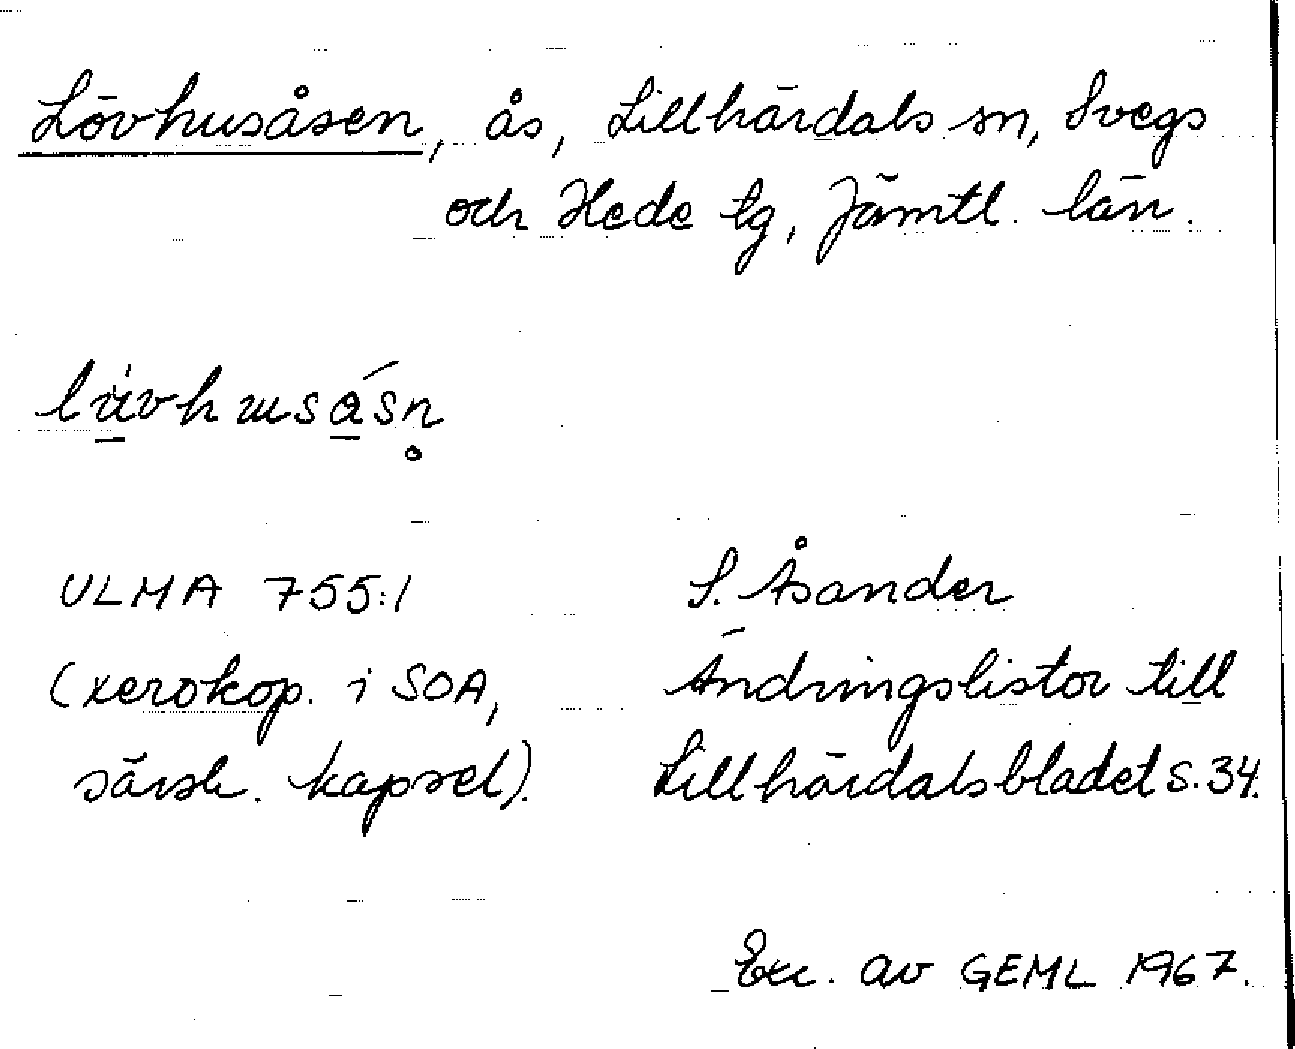 Lövhusåsen, ås, Lillhärdals sn, Svegs
och Hede tg, Jämtl. län.
ULMA 755:1
(xerokop. i SOA,
särsk. kapsel).
S. Åsander
Ändringslistor till
Lillhärdalsbladet s. 34.
Exc. av GEML 1967.